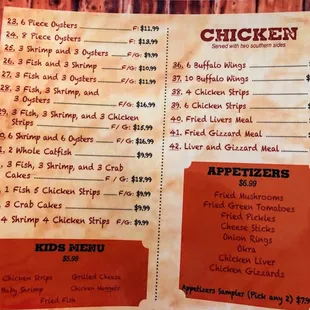 23, 6 Piece Oysters F: $11.99
24, 8 Piece Oysters F: $13.99
25, 3 Shrimp and 3 Oysters F/G: $9.99
26, 3 Fish and 3 Shrimp F/G: $10.99
27, 3 Fish and 3 Oysters F/G: $11.99
28, 3 Fish, 3 Shrimp, and
3 Oysters F/G: $16.99
29, 3 Fish, 3 Shrimp, and 3 Chicken
Strips F/G: $15.99
6 Shrimp and 6 Oysters F/G: $16.99
2 Whole Catfish $9.99
3 Fish, 3 Shrimp, and 3 Crab
Cakes F/G: $18.99
1 Fish 5 Chicken Strips F/G: $9.99
3 Crab Cakes F/G: $9.99
4 Shrimp 4 Chicken Strips F/G: $9.99
KIDS MENU
Chicken Strips Grilled Cheese
Baby Shrimp Chicken Nuggets
Fried Fish
CHICKEN
Served with two southern sides
36, 6 Buffalo Wings
37, 10 Buffalo Wings
38, 4 Chicken Strips
39, 6 Chicken Strips
40, Fried Livers Meal
41, Fried Gizzard Meal
42, Liver and Gizzard Meal
APPETIZERS
$6.99
Fried Mushrooms
Fried Green Tomatoes
Fried Pickles
Cheese Sticks
Onion Rings
Okra
Chicken Liver
Chicken Gizzards
Appetizers Sampler (Pick any 2)